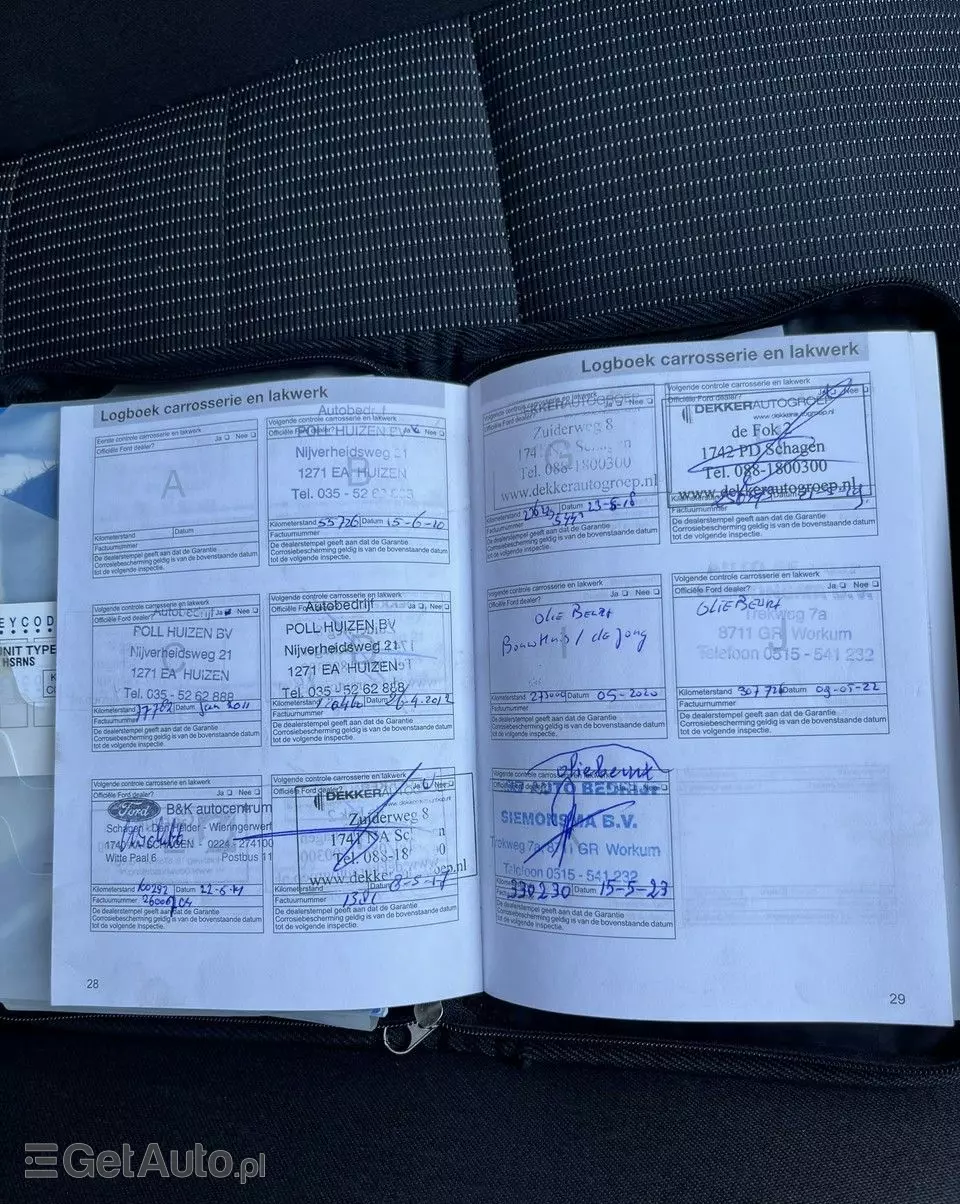 Logboek carrosserie en lakwerk
Eerste controle carrosserie en lakwerk
Officiële Ford dealer? Ja Nee
A
Kilometerstand Datum
Factuurnummer
De dealerstempel geeft aan dat de Garantie
Corrosiebescherming geldig is van de bovenstaande datum
tot de volgende inspectie.
Volgende controle carrosserie en lakwerk
Officiële Ford dealer? Ja Nee
Autobedrijf
POLL HUIZEN BV
Nijverheidsweg 21
1271 EA HUIZEN
Tel. 035 - 52 62 888
B
Kilometerstand 55726 Datum 15-6-10
Factuurnummer
De dealerstempel geeft aan dat de Garantie
Corrosiebescherming geldig is van de bovenstaande datum
tot de volgende inspectie.
Volgende controle carrosserie en lakwerk
Officiële Ford dealer? Ja Nee
Autobedrijf
POLL HUIZEN BV
Nijverheidsweg 21
1271 EA HUIZEN
Tel. 035 - 52 62 888
C
Kilometerstand Datum Jan 2011
Factuurnummer
De dealerstempel geeft aan dat de Garantie
Corrosiebescherming geldig is van de bovenstaande datum
tot de volgende inspectie.
Volgende controle carrosserie en lakwerk
Officiële Ford dealer? Ja Nee
Autobedrijf
POLL HUIZEN BV
Nijverheidsweg 21
1271 EA HUIZEN
Tel. 035 - 52 62 888
Kilometerstand Datum 26-4-2012
Factuurnummer
De dealerstempel geeft aan dat de Garantie
Corrosiebescherming geldig is van de bovenstaande datum
tot de volgende inspectie.
Volgende controle carrosserie en lakwerk
Officiële Ford dealer? Ja Nee
Ford B&K autocentrum
Schagen - Den Helder - Wieringerwerf
SCHAGEN - 0224 - 274100
Witte Paal 6 Postbus 11
Kilometerstand Datum 22-5-14
Factuurnummer
De dealerstempel geeft aan dat de Garantie
Corrosiebescherming geldig is van de bovenstaande datum
tot de volgende inspectie.
Volgende controle carrosserie en lakwerk
Officiële Ford dealer? Ja Nee
DEKKERAUTOGROEP
Zuiderweg 8
Tel. 088-18
www.dekkerautogroep.nl
Kilometerstand Datum
Factuurnummer
De dealerstempel geeft aan dat de Garantie
Corrosiebescherming geldig is van de bovenstaande datum
tot de volgende inspectie.
28
Logboek carrosserie en lakwerk
Volgende controle carrosserie en lakwerk
Officiële Ford dealer? Ja Nee
DEKKERAUTOGROEP
Zuiderweg 8
Tel. 088-1800300
www.dekkerautogroep.nl
G
Kilometerstand Datum 23-5-18
Factuurnummer
De dealerstempel geeft aan dat de Garantie
Corrosiebescherming geldig is van de bovenstaande datum
tot de volgende inspectie.
Volgende controle carrosserie en lakwerk
Officiële Ford dealer? Ja Nee
DEKKERAUTOGROEP
www.dekkerautogroep.nl
de Fok 2
1742 PD Schagen
Tel. 088-1800300
www.dekkerautogroep.nl
Kilometerstand Datum
Factuurnummer
De dealerstempel geeft aan dat de Garantie
Corrosiebescherming geldig is van de bovenstaande datum
tot de volgende inspectie.
Volgende controle carrosserie en lakwerk
Officiële Ford dealer? Ja Nee
OLIE BEURT
Bouwhuis / de Jong
I
Kilometerstand 273000 Datum 05-2020
Factuurnummer
De dealerstempel geeft aan dat de Garantie
Corrosiebescherming geldig is van de bovenstaande datum
tot de volgende inspectie.
Volgende controle carrosserie en lakwerk
Officiële Ford dealer? Ja Nee
OLIE BEURT
Trekweg 7a
8711 GR Workum
Telefoon 0515 - 541 232
J
Kilometerstand 307726 Datum 03-05-22
Factuurnummer
De dealerstempel geeft aan dat de Garantie
Corrosiebescherming geldig is van de bovenstaande datum
tot de volgende inspectie.
Volgende controle carrosserie en lakwerk
Officiële Ford dealer? Ja Nee
oliebeurt
AUTO BEDRIJF
SIEMONSMA B.V.
Trekweg 7a, 8711 GR Workum
Telefoon 0515 - 541 232
Kilometerstand 330230 Datum 15-5-23
De dealerstempel geeft aan dat de Garantie
Corrosiebescherming geldig is van de bovenstaande datum
tot de volgende inspectie.
29
EYCOD
NIT TYPE
HSRNS
GetAuto.pl